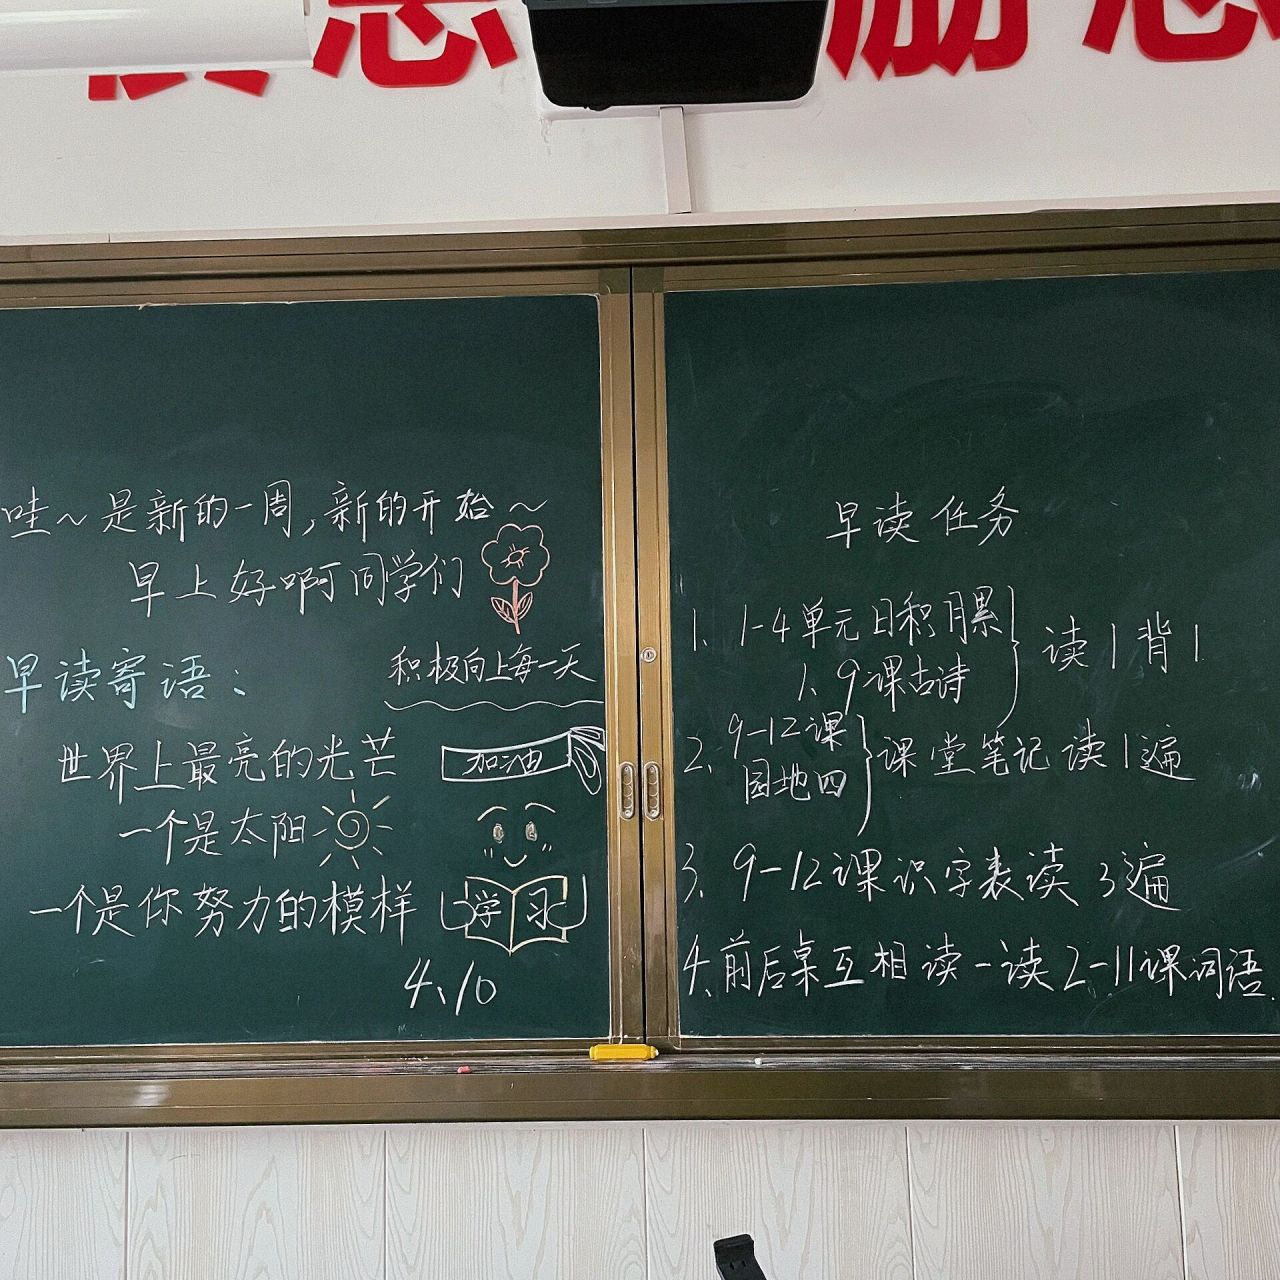 励
哇～是新的一周,新的开始～
早上好啊同学们
早读寄语：
积极向上每一天
世界上最亮的光芒
加油
一个是太阳
一个是你努力的模样
学习
4、10
早读任务
1、1-4单元日积月累
1、9课古诗
读1背1
2、9-12课
园地四
课堂笔记读1遍
3、9-12课识字表读3遍
4、前后桌互相读一读2-11课词语.